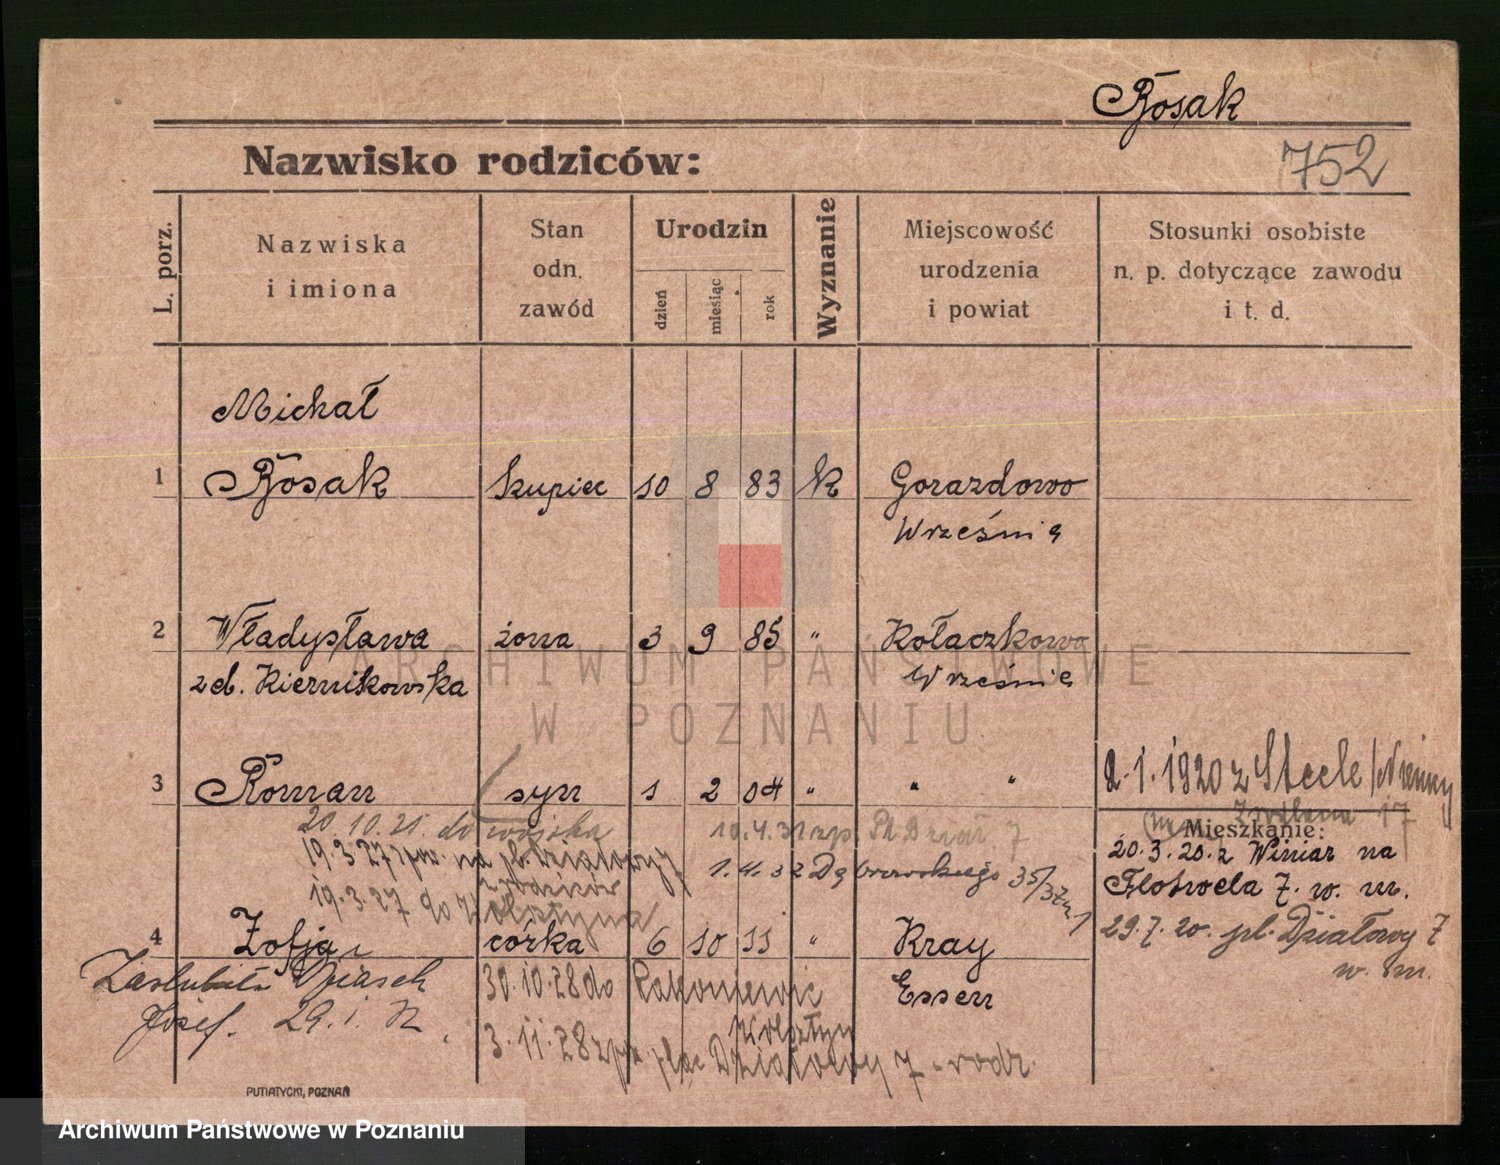 Rosak
Nazwisko rodziców:
752
L. porz.
Nazwiska
i imiona
Stan
odn.
zawód
Urodzin
dzień
miesiąc
rok
Wyznanie
Miejscowość
urodzenia
i powiat
Stosunki osobiste
n. p. dotyczące zawodu
i t. d.
Michał
1 Rosak kupiec 10 8 83 k Gorazdowo
Września
2 Władysława żona 3 9 85 " Kołaczkowo
Wrześnie
3 Roman syn 1 2 04 " " "
2.1.1920 z Steele/Niemcy
17
20.10.21. do wojska
10.4.31 zp. Pl. Dział. 7
Mieszkanie:
19.3.27 na pl. Działowy 7
rodziców
1.4.32 Dąbrowskiego 35/37
20.3.20. z Winiar na
Flotwela 7. w. m.
19.3.27 do Wolsztyna
4 Zofja córka 6 10 11 " Kray
Essen
29.7.20. pl. Działowy 7
w. m.
Zaślubiła
Josef. 29.1.
30.10.28 do Rakoniewic
Wolsztyn
3.11.28 plac Działowy 7 - rodz.
PUTIATYCKI, POZNAŃ
ARCHIWUM PAŃSTWOWE
W POZNANIU
Archiwum Państwowe w Poznaniu